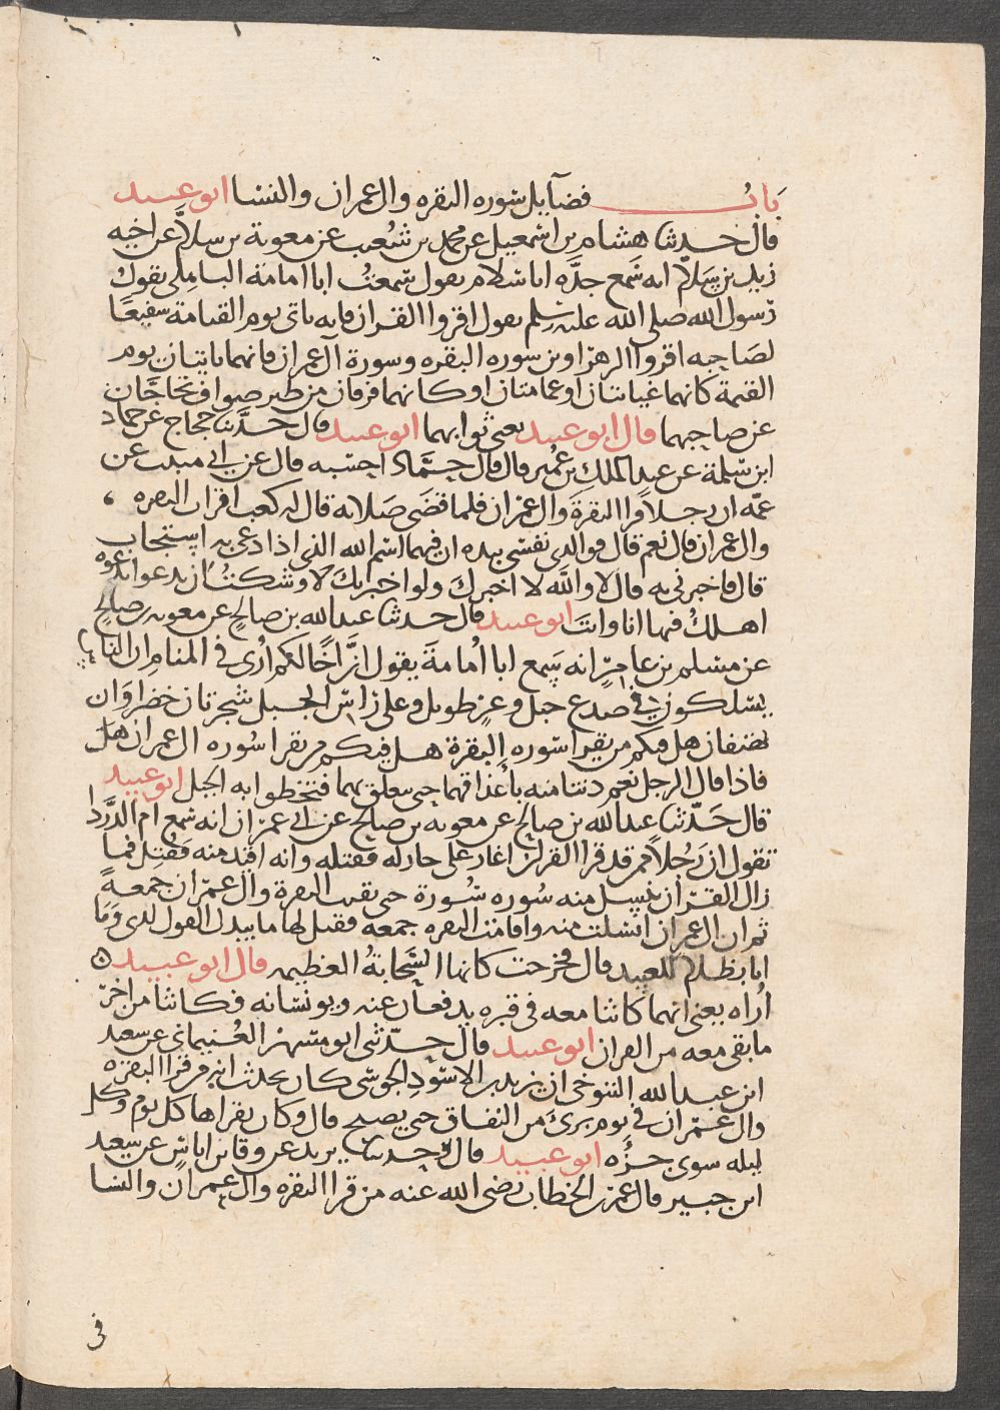 باب فضايل سوره البقره وال عمران والنسا ابو عبيد
قال حدثنا هشام بن اسمعيل عن محمد بن شعيب عن معوية بن سلام عن اخيه
زيد بن سلام انه سمع جده ابا سلام يقول سمعت ابا امامة الباهلي يقول
رسول الله صلى الله عليه وسلم يقول اقروا القران فانه ياتي يوم القيامة شفيعا
لصاحبه اقروا الزهراوين سوره البقره وسورة آل عمران فانهما ياتيان يوم
القيمة كانهما غيايتان او غمامتان او كانهما فرقان من طير صواف تحاجان
عن صاحبهما قال ابو عبيد يعني ثوابهما ابو عبيد قال حدثنا حجاج عن حماد
ابن سلمة عن عبد الملك بن عمير قال قال حماد احسبه قال عن ابي منيب عن
عمه ان رجلا قرا البقرة وال عمران فلما قضى صلاته قال له كعب اقرات البقره
وال عمران قال نعم قال فوالذي نفسي بيده ان فيهما اسم الله الذي اذا دعي به استجاب
قال فاخبرني به قال لا والله لا اخبرك ولو اخبرتك لاوشكت ان تدعو بدعوه
اهلك فيها انا وانت ابو عبيد قال حدثنا عبد الله بن صالح عن معويه بن صالح
عن سليم بن عامر انه سمع ابا امامة يقول ان اخا لكم اري في المنام ان الناس
يسلكون في صدع جبل وعر طويل وعلى راس الجبل شجرتان خضراوان
تهتفان هل فيكم من يقرا سوره البقرة هل فيكم من يقرا سوره ال عمران هل
فاذا قال الرجل نعم دنتا منه باعذاقهما حتى يتعلق بهما فتخطوا به الجبل ابو عبيد
قال حدثنا عبد الله بن صالح عن معويه بن صالح عن ابي عمران انه سمع ام الدردا
تقول ان رجلا ممن قد قرا القران اغار على جار له فقتله وانه اقيد منه فقتل فما
زال القران ينسل منه سوره سورة حتى بقيت البقرة وال عمران جمعة
ثم ان ال عمران انسلت منه واقامت البقره جمعه فقيل لها ما يبدل القول لدي وما
انا بظلام للعبيد قال فخرجت كانها السحابة العظيمه قال ابو عبيد ه
اراه يعني انهما كانتا معه في قبره يدفعان عنه ويونسانه فكانتا من اخر
ما بقي معه من القران ابو عبيد قال حدثني ابو مسهر الغسماني عن سعيد
ابن عبد الله التنوخي ان يزيد بن الاسود الجوشي كان يحدث انه من قرا البقره
وال عمران في يوم برئ من النفاق حتى يصبح قال وكان يقراها كل يوم وكل
ليله سوى جزه ابو عبيد قال وحدثنا يزيد عن وقا بن اياس عن سعيد
ابن جبير قال عمر بن الخطاب رضي الله عنه من قرا البقره وال عمران والنسا
في